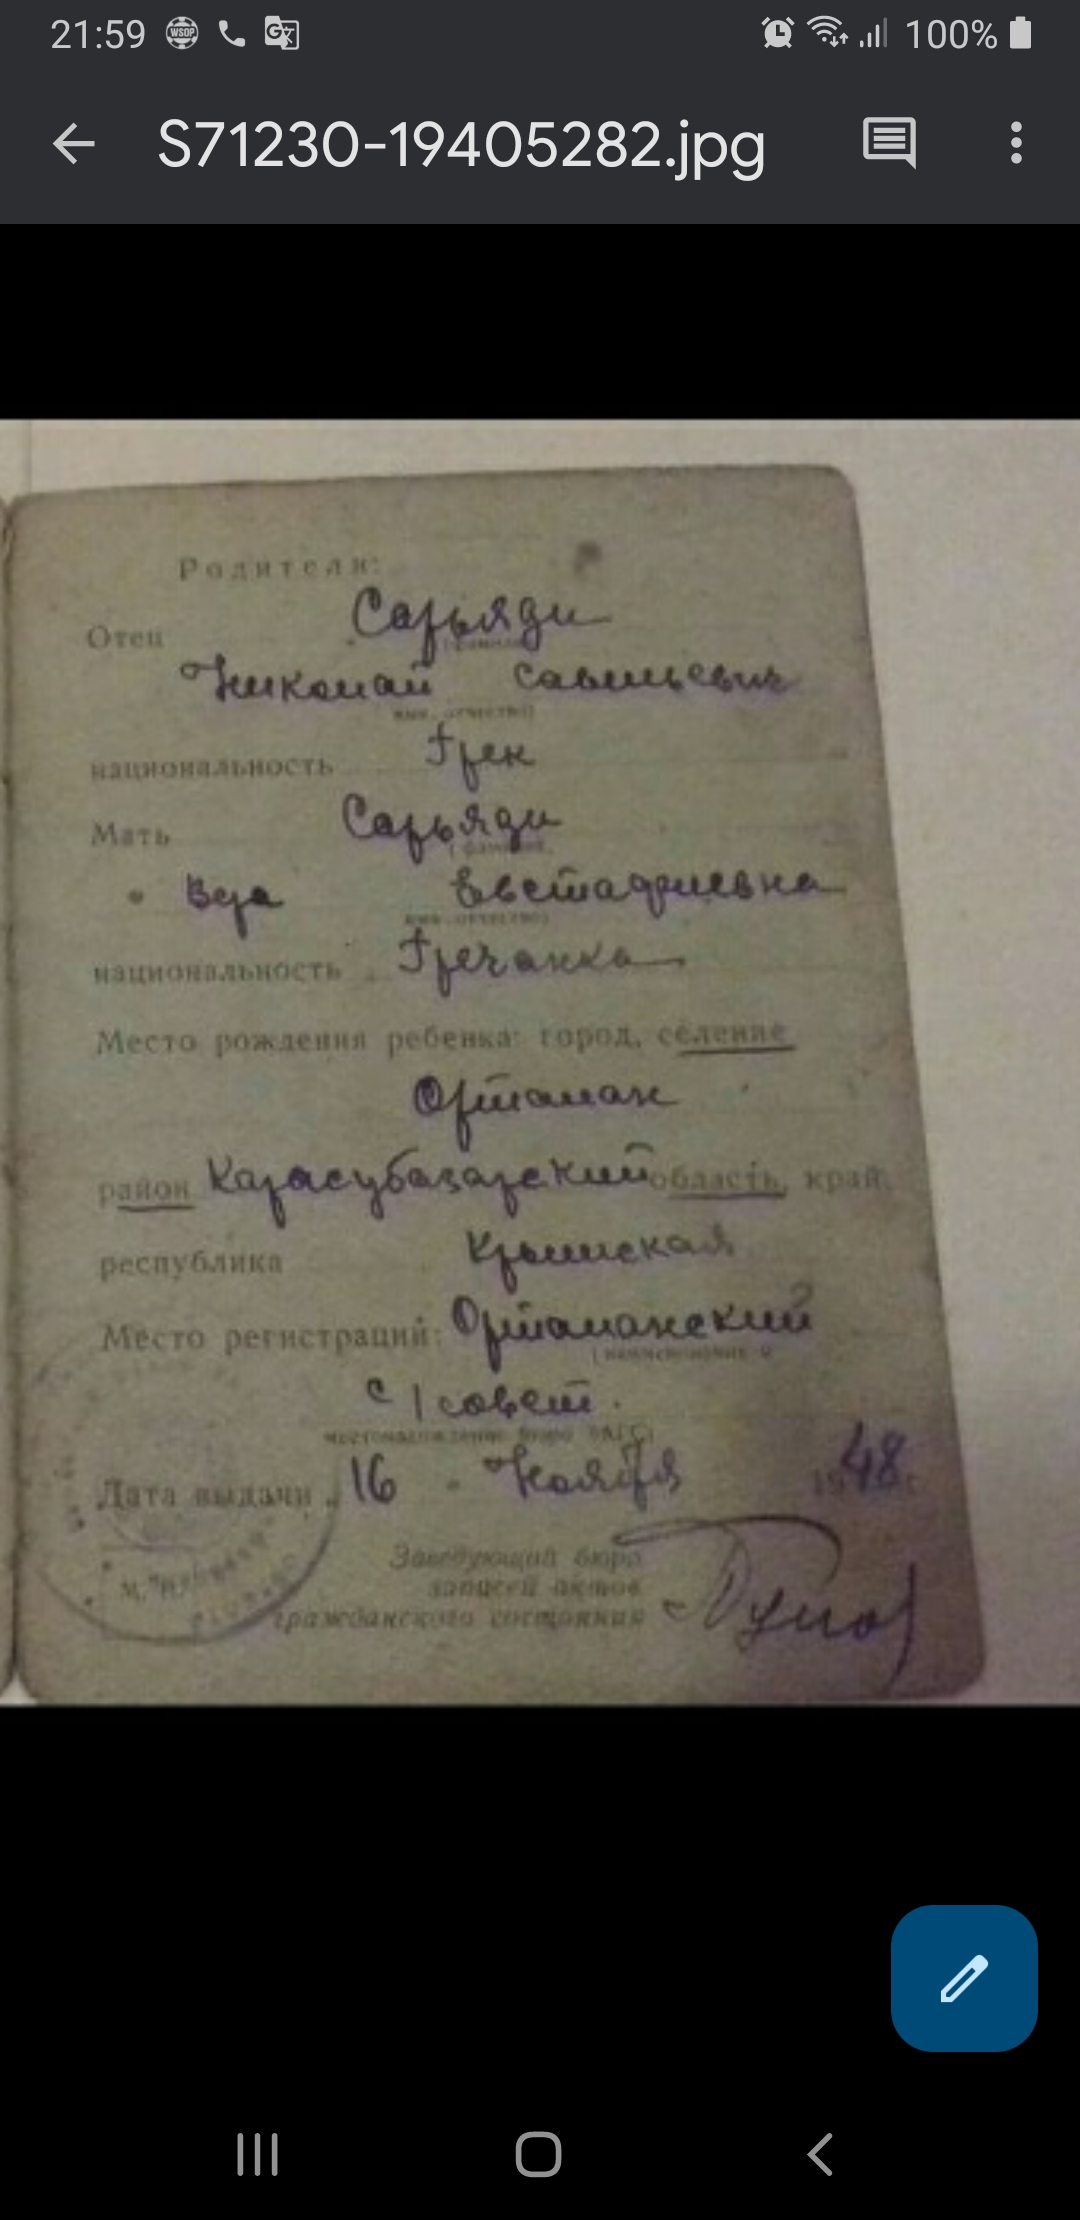 21:59 100%
S71230-19405282.jpg
Родители:
Отец Сарьяди
Николай Савельевич
имя, отчество
национальность Грек
Мать Сарьяди
Вера Евстафиевна
имя, отчество
национальность Гречанка
Место рождения ребенка: город, селение
Орталан
район Карасубазарский область, край,
республика Крымская
Место регистраций: Орталанский
с/совет.
Дата выдачи 16 Ноября 1948 г.
Заведующий бюро
записей актов
гражданского состояния